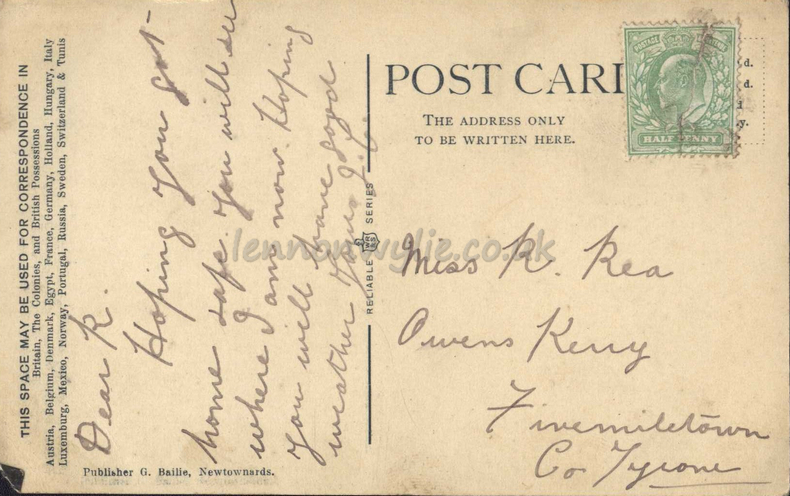 THIS SPACE MAY BE USED FOR CORRESPONDENCE IN
Britain, The Colonies, and British Possessions
Austria, Belgium, Denmark, Egypt, France, Germany, Holland, Hungary, Italy
Luxemburg, Mexico, Norway, Portugal, Russia, Sweden, Switzerland & Tunis
Dear K.
Hoping you got
home safe you will see
where I am now. Hoping
you will have good
weather Yours J.C.
Publisher G. Bailie, Newtownards.
RELIABLE WR&S SERIES
POST CAR
THE ADDRESS ONLY
TO BE WRITTEN HERE.
POSTAGE
HALF PENNY
d.
d.
y.
Miss K. Rea
Owens Kerry
Fivemiletown
Co Tyrone
lennonwylie.co.uk